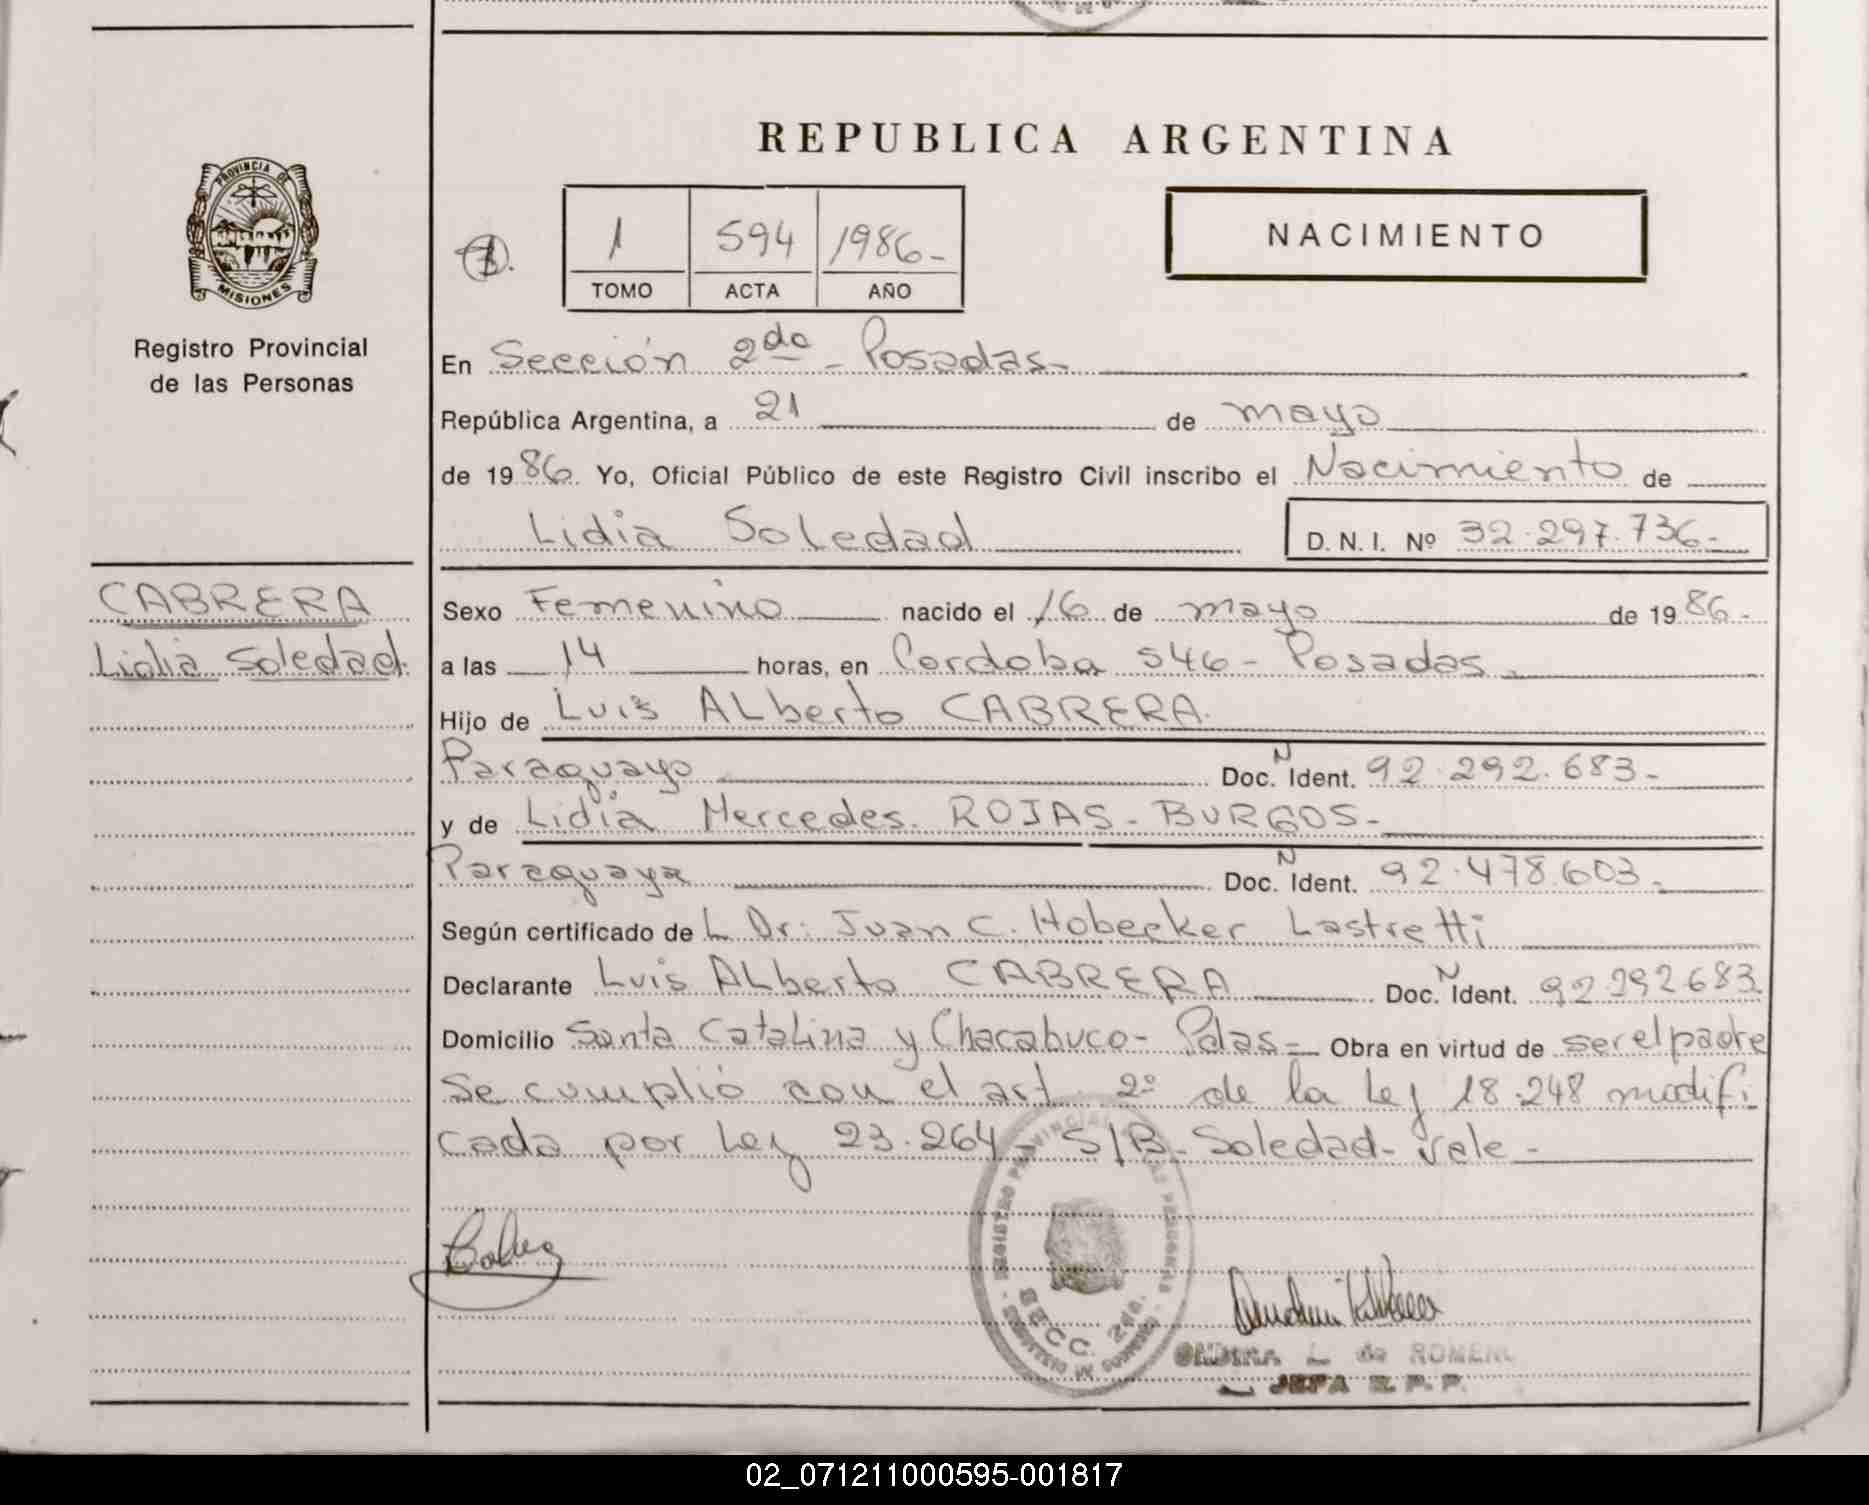 PROVINCIA DE
MISIONES
Registro Provincial
de las Personas
CABRERA
Lidia Soledad.
REPUBLICA ARGENTINA
1 594 1986-
TOMO ACTA AÑO
NACIMIENTO
En Sección 2da - Posadas-
República Argentina, a 21 de mayo
de 1986. Yo, Oficial Público de este Registro Civil inscribo el Nacimiento de
Lidia Soledad D. N. I. Nº 32.297.736-
Sexo Femenino nacido el 16 de mayo de 1986-
a las 14 horas, en Cordoba 546 - Posadas.
Hijo de Luis ALberto CABRERA.
Paraguayo Doc. N Ident. 92.292.683-
y de Lidia Mercedes. ROJAS - BURGOS-
Paraguaya Doc. N Ident. 92.478.603.
Según certificado de L Dr: Juan C. Hobecker Lastretti
Declarante Luis ALberto CABRERA Doc. N Ident. 92.292683.
Domicilio Santa Catalina y Chacabuco- Pdas= Obra en virtud de ser el padre
Se cumplió con el art 2º de la Ley 18.248 modifi
cada por Ley 23.264 - S/B- Soledad- vale -
REGISTRO PROVINCIAL DE LAS PERSONAS
SECC. 2da.
ONDINA L. de ROMERO
JEFA R. P. P.
02_071211000595-001817